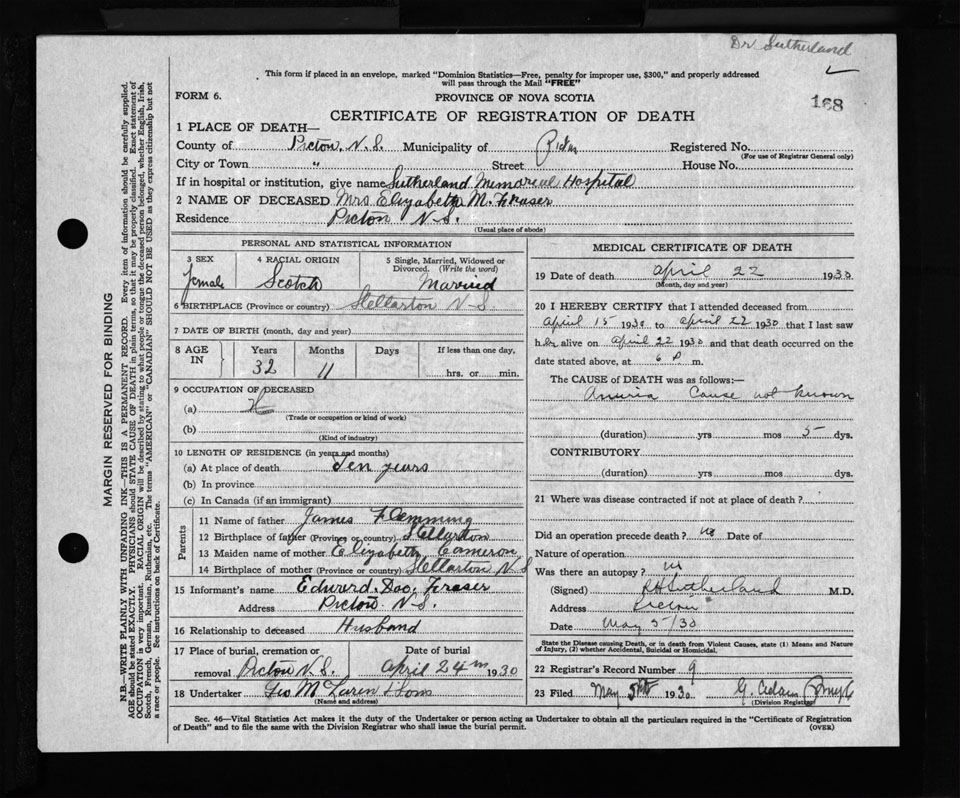 Dr Sutherland
This form if placed in an envelope, marked "Dominion Statistics—Free, penalty for improper use, $300," and properly addressed
will pass through the Mail "FREE"
FORM 6.
PROVINCE OF NOVA SCOTIA
168
CERTIFICATE OF REGISTRATION OF DEATH
1 PLACE OF DEATH—
County of Picton, N.S. Municipality of Registered No.
(For use of Registrar General only)
City or Town " Street House No.
If in hospital or institution, give name Sutherland Memorial Hospital
2 NAME OF DECEASED Mrs Elizabeth M. Fraser
Residence Picton N.S.
(Usual place of abode)
PERSONAL AND STATISTICAL INFORMATION
3 SEX 4 RACIAL ORIGIN 5 Single, Married, Widowed or
Divorced. (Write the word)
female Scotch Married
6 BIRTHPLACE (Province or country) Stellarton N-S.
7 DATE OF BIRTH (month, day and year)
8 AGE IN Years Months Days If less than one day,
32 11 hrs. or min.
9 OCCUPATION OF DECEASED
(a)
(Trade or occupation or kind of work)
(b)
(Kind of industry)
10 LENGTH OF RESIDENCE (in years and months)
(a) At place of death Ten years
(b) In province
(c) In Canada (if an immigrant)
Parents
11 Name of father James Flemming
12 Birthplace of father (Province or country) Stellarton
13 Maiden name of mother Elizabeth Cameron
14 Birthplace of mother (Province or country) Stellarton N S
15 Informant's name Edward Fraser
Address Picton N.S.
16 Relationship to deceased Husband
17 Place of burial, cremation or Date of burial
removal Picton N.S. April 24th 1930
18 Undertaker Geo McLaren & Sons
(Name and address)
MEDICAL CERTIFICATE OF DEATH
19 Date of death april 22 1930
(Month, day and year)
20 I HEREBY CERTIFY that I attended deceased from
April 15 1930 to april 22 1930 that I last saw
her alive on april 22 1930 and that death occurred on the
date stated above, at 6 P. m.
The CAUSE of DEATH was as follows:—
Anuria Cause not known
(duration) yrs mos 5 dys.
CONTRIBUTORY
(duration) yrs mos dys.
21 Where was disease contracted if not at place of death?
Did an operation precede death? no Date of
Nature of operation
Was there an autopsy?
(Signed) Sutherland M.D.
Address Picton
Date May 5/30
State the Disease causing Death, or in death from Violent Causes, state (1) Means and Nature
of Injury, (2) whether Accidental, Suicidal or Homicidal.
22 Registrar's Record Number 9
23 Filed May 5th 1930 G.
(Division Registrar)
Sec. 46—Vital Statistics Act makes it the duty of the Undertaker or person acting as Undertaker to obtain all the particulars required in the "Certificate of Registration
of Death" and to file the same with the Division Registrar who shall issue the burial permit.
(OVER)
MARGIN RESERVED FOR BINDING
N.B.—WRITE PLAINLY WITH UNFADING INK—THIS IS A PERMANENT RECORD. Every item of information should be carefully supplied.
AGE should be stated EXACTLY. PHYSICIANS should STATE CAUSE OF DEATH in plain terms, so that it may be properly classified. Exact statement of
OCCUPATION is very important. RACIAL ORIGIN will be described by stating to what people or tongue the deceased person belonged, whether English, Irish,
Scotch, French, German, Russian, Ruthenian, etc. The terms "AMERICAN" or "CANADIAN" SHOULD NOT BE USED as they express citizenship but not
a race or people. See instructions on back of Certificate.